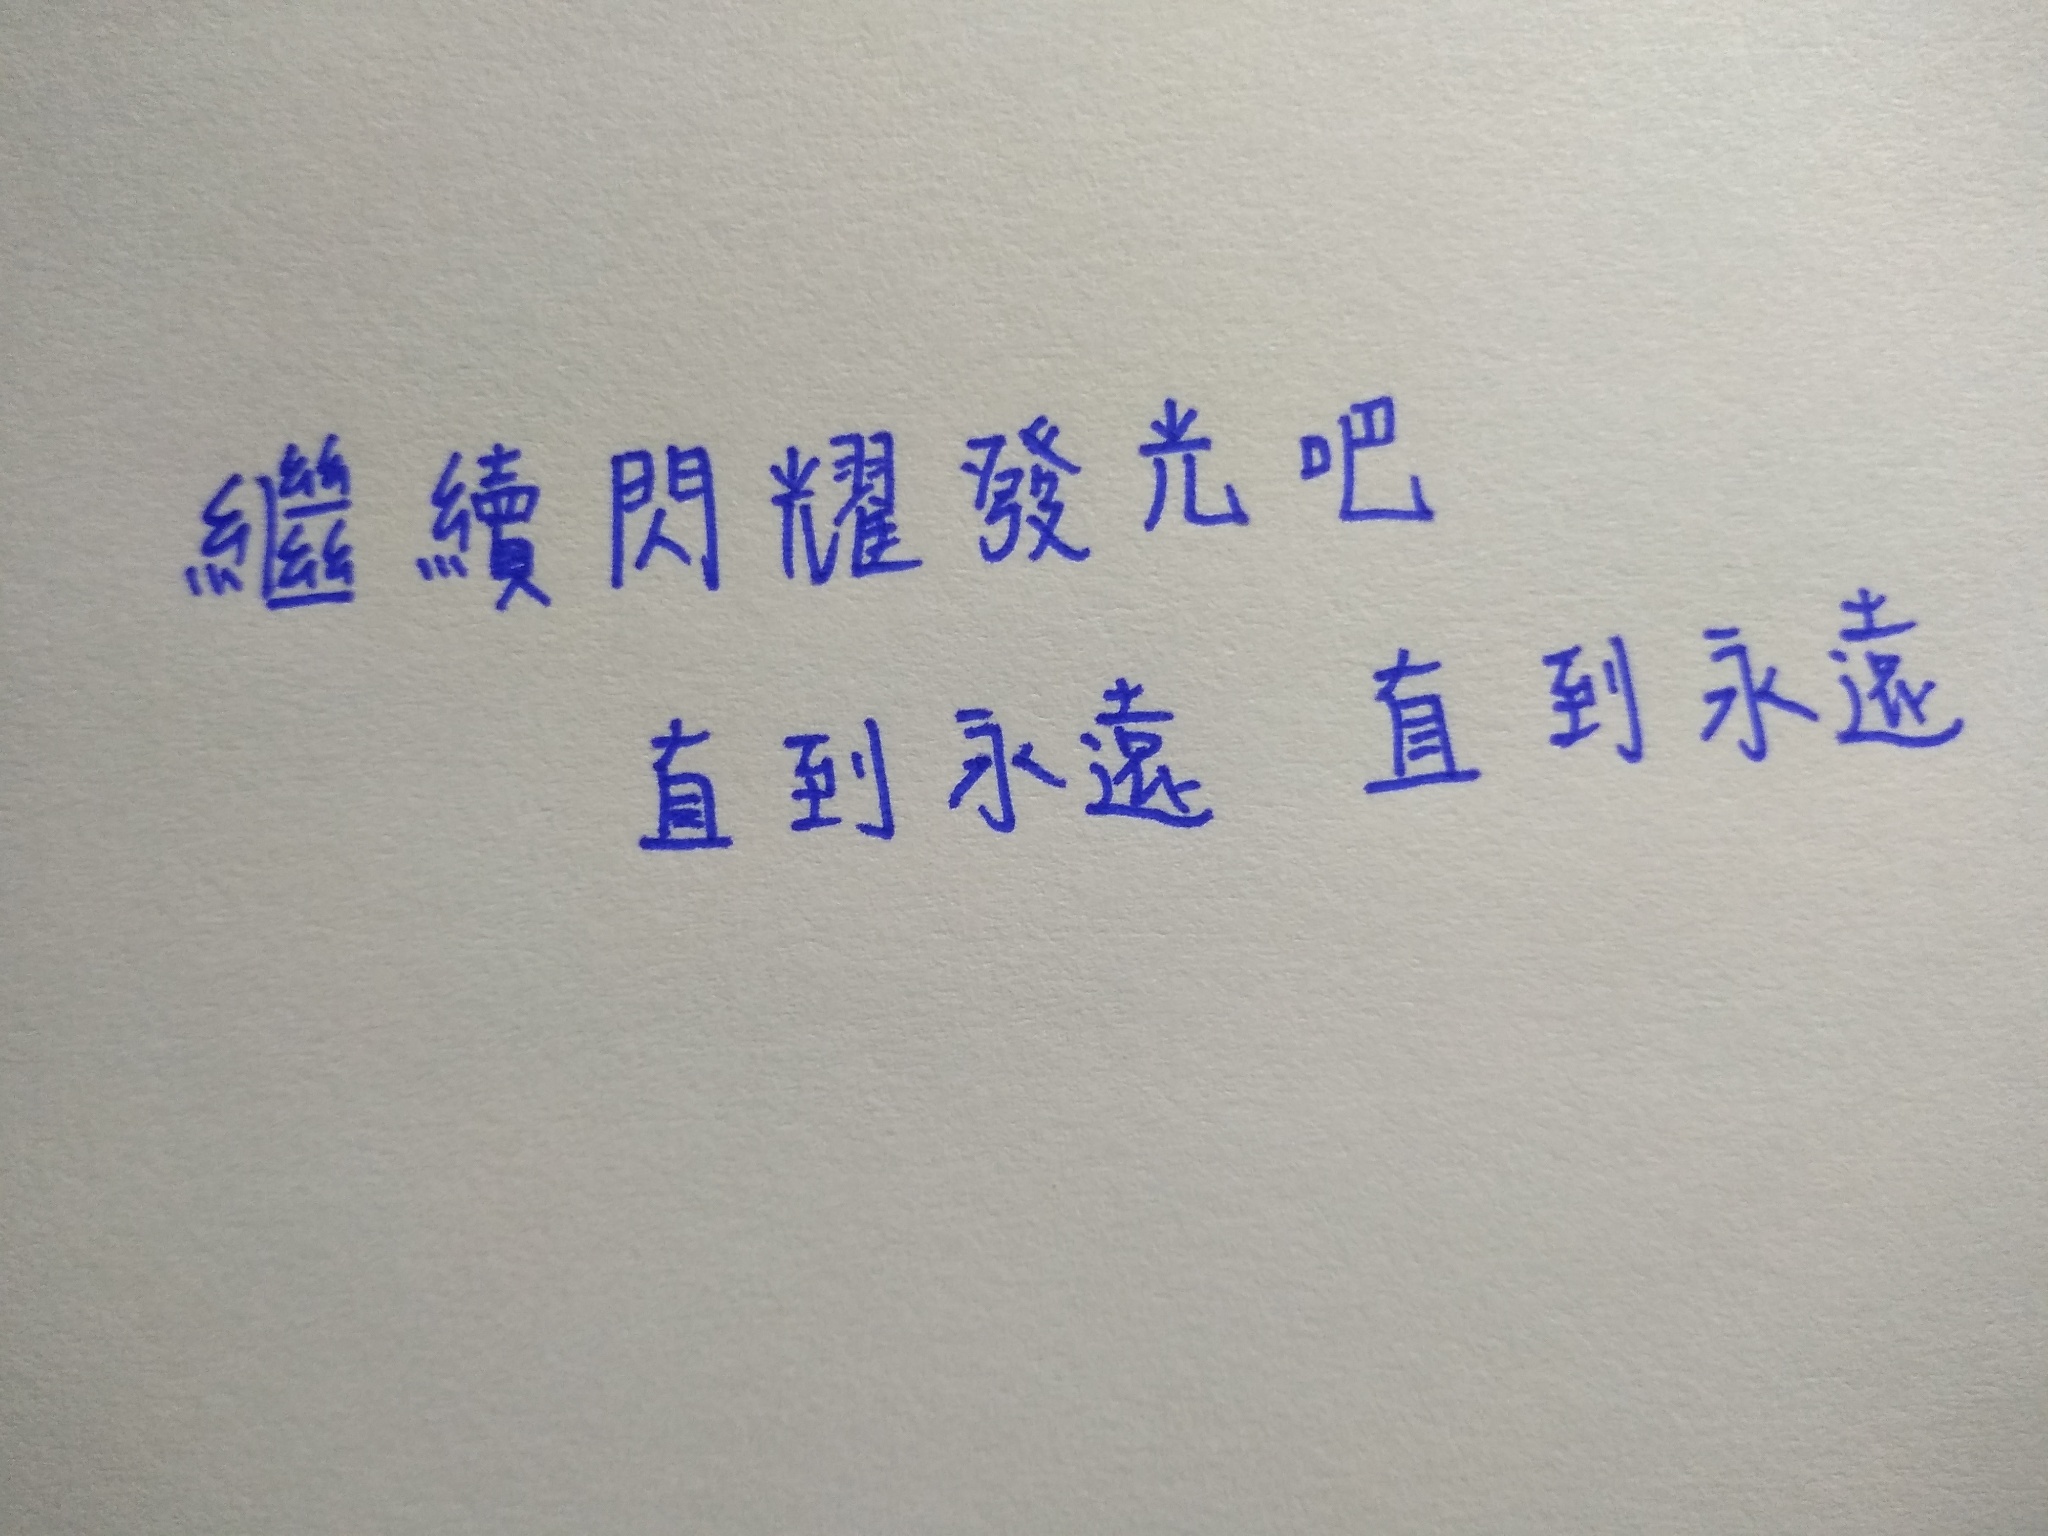 繼續閃耀發光吧
直到永遠 直到永遠